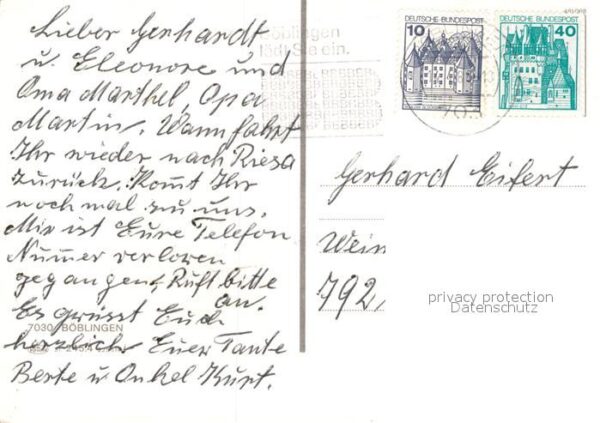 Lieber Gerhardt
u. Eleonore und
Oma Marthel, Opa
Martin. Wann fahrt
Ihr wieder nach Riesa
zurück. Kommt Ihr
noch mal zu uns.
Mir ist Eure Telefon
Nummer verloren
gegangen. Ruft bitte
an.
Es grüsst Euch
herzlich Euer Tante
Berte u Onkel Kurt.
7030 BÖBLINGEN
Böblingen
lädt Sie ein.
10 DEUTSCHE BUNDESPOST
DEUTSCHE BUNDESPOST 40
703
Gerhard Eifert
Wein
792,
privacy protection
Datenschutz